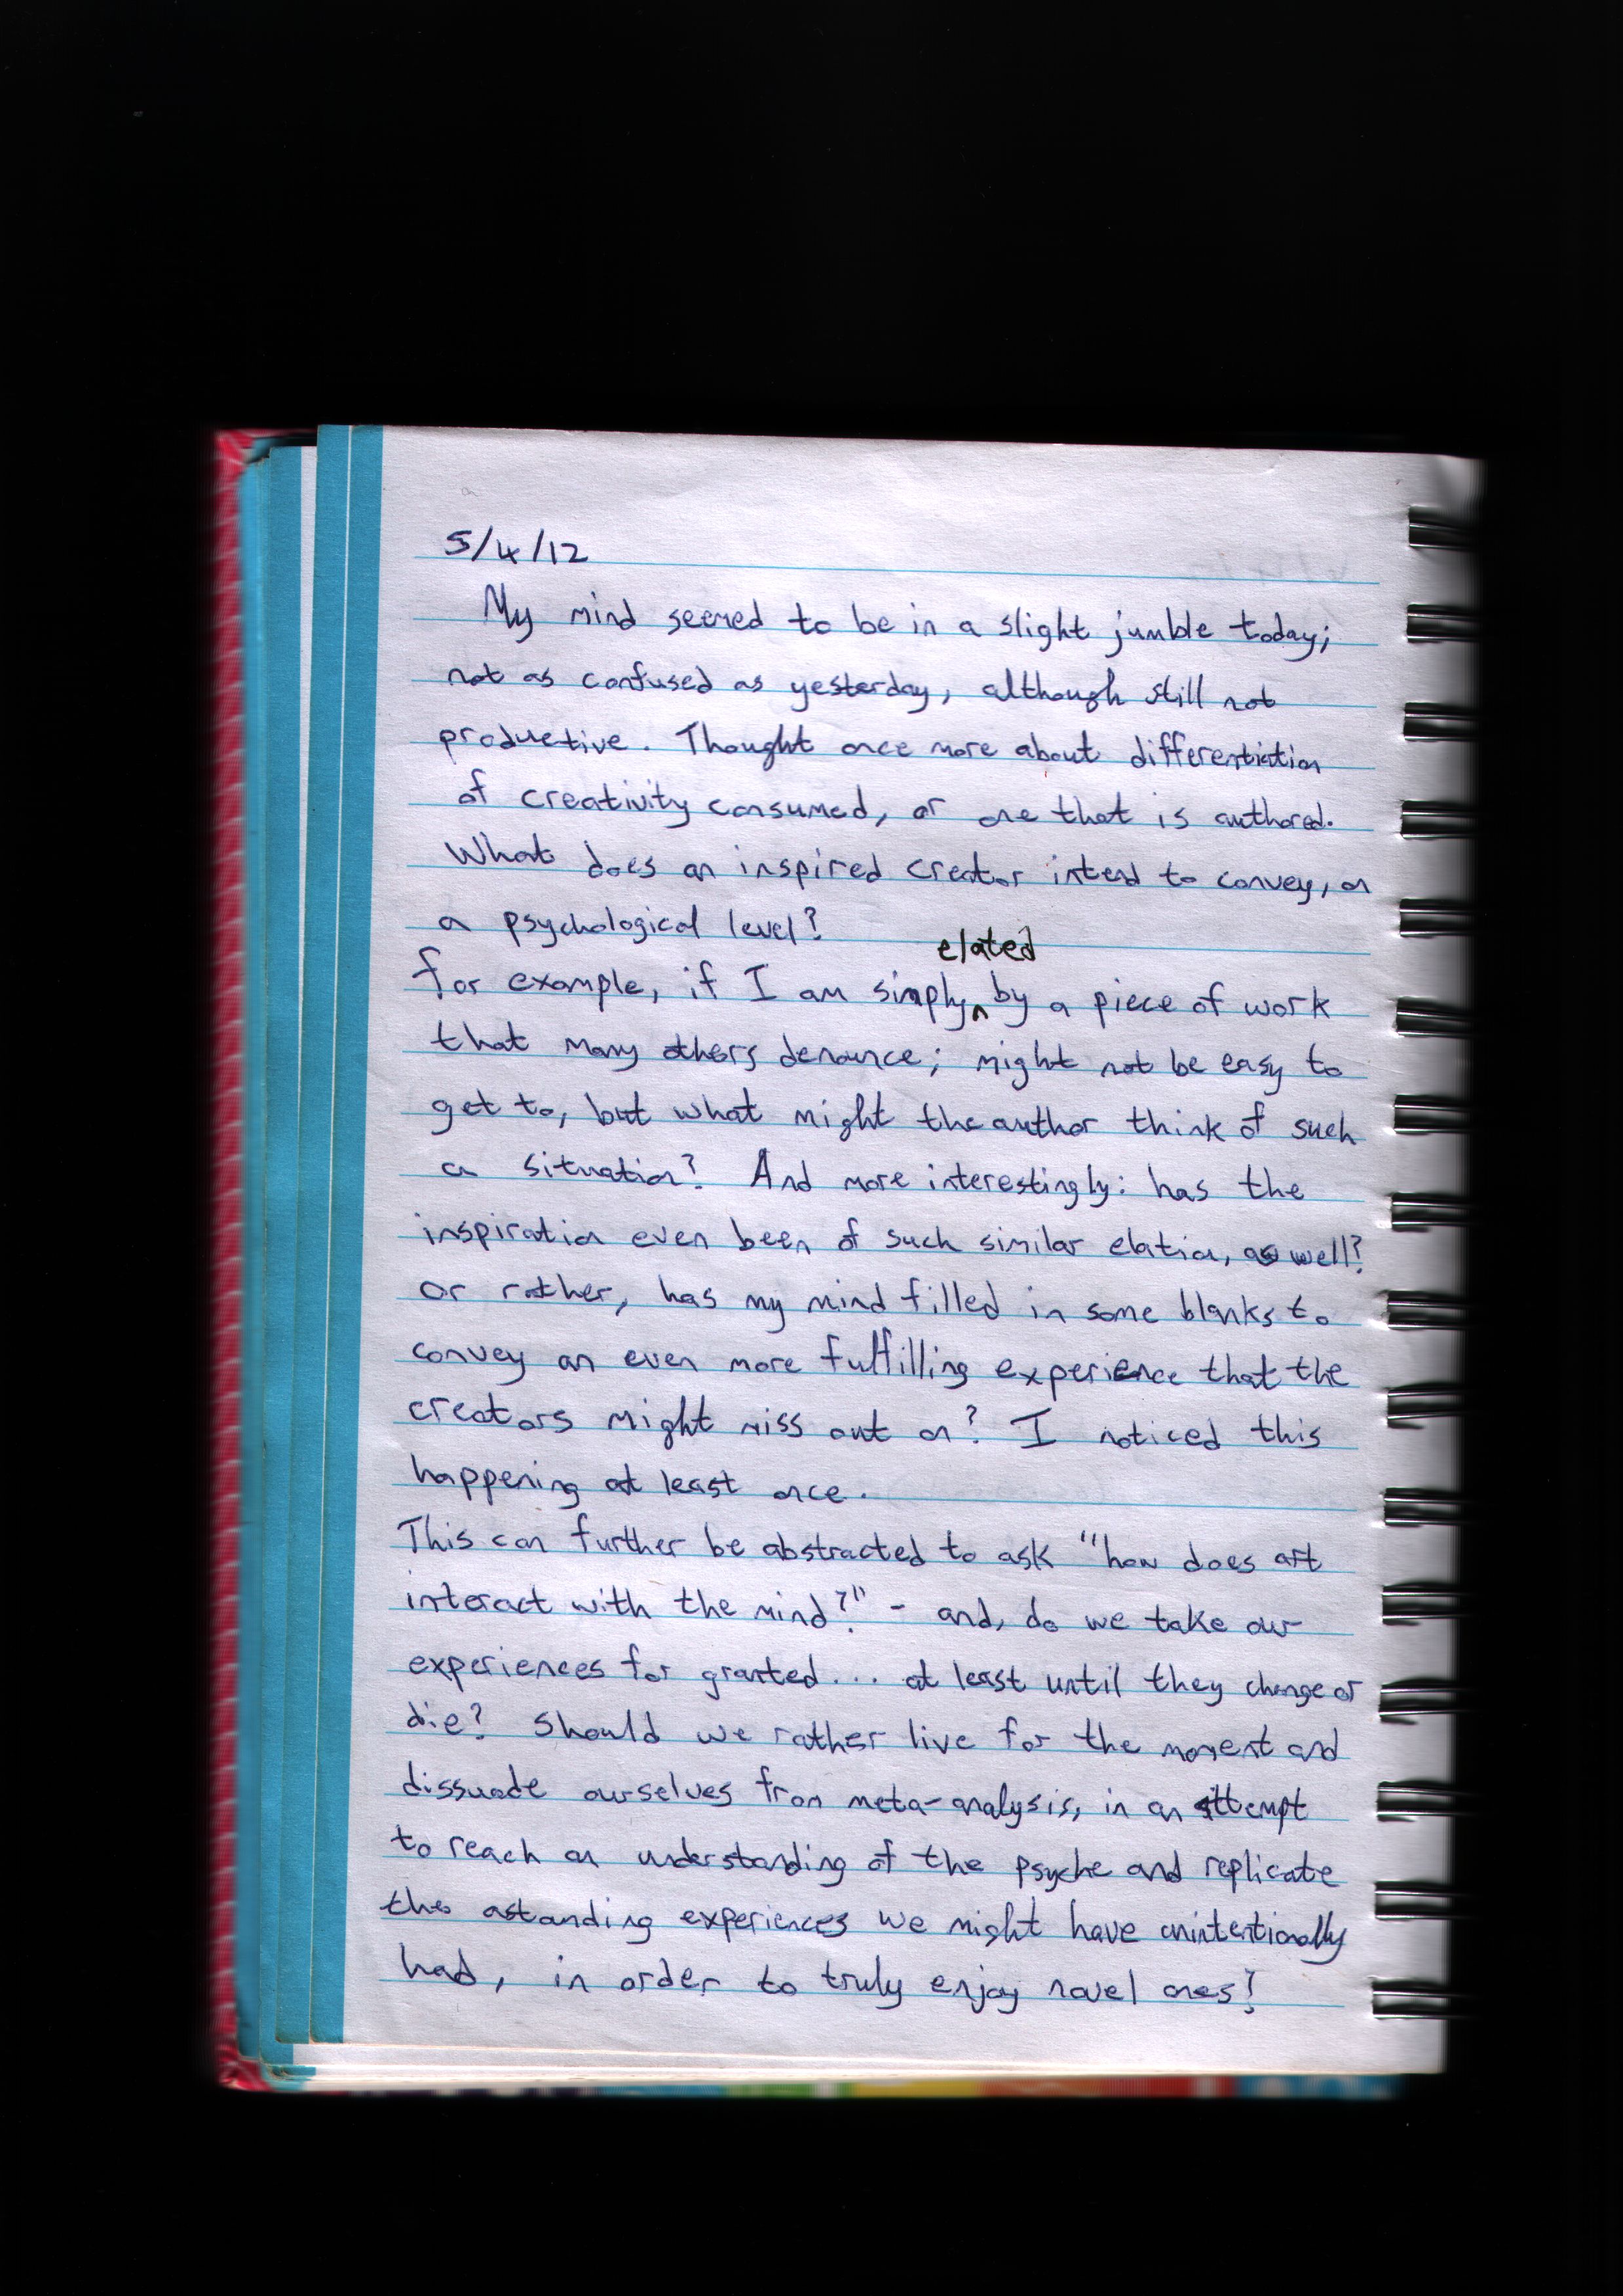 5/4/12
My mind seemed to be in a slight jumble today;
not as confused as yesterday, although still not
productive. Thought once more about differentiation
of creativity consumed, or one that is authored.
What does an inspired creator intend to convey, on
a psychological level?
elated
for example, if I am simply by a piece of work
that many others denounce; might not be easy to
get to, but what might the author think of such
a situation? And more interestingly: has the
inspiration even been of such similar elation, as well?
Or rather, has my mind filled in some blanks to
convey an even more fulfilling experience that the
creators might miss out on? I noticed this
happening at least once.
This can further be abstracted to ask "how does art
interact with the mind?" - and, do we take our
experiences for granted... at least until they change or
die? Should we rather live for the moment and
dissuade ourselves from meta-analysis, in an attempt
to reach an understanding of the psyche and replicate
the astanding experiences we might have unintentionally
had, in order to truly enjoy novel ones?